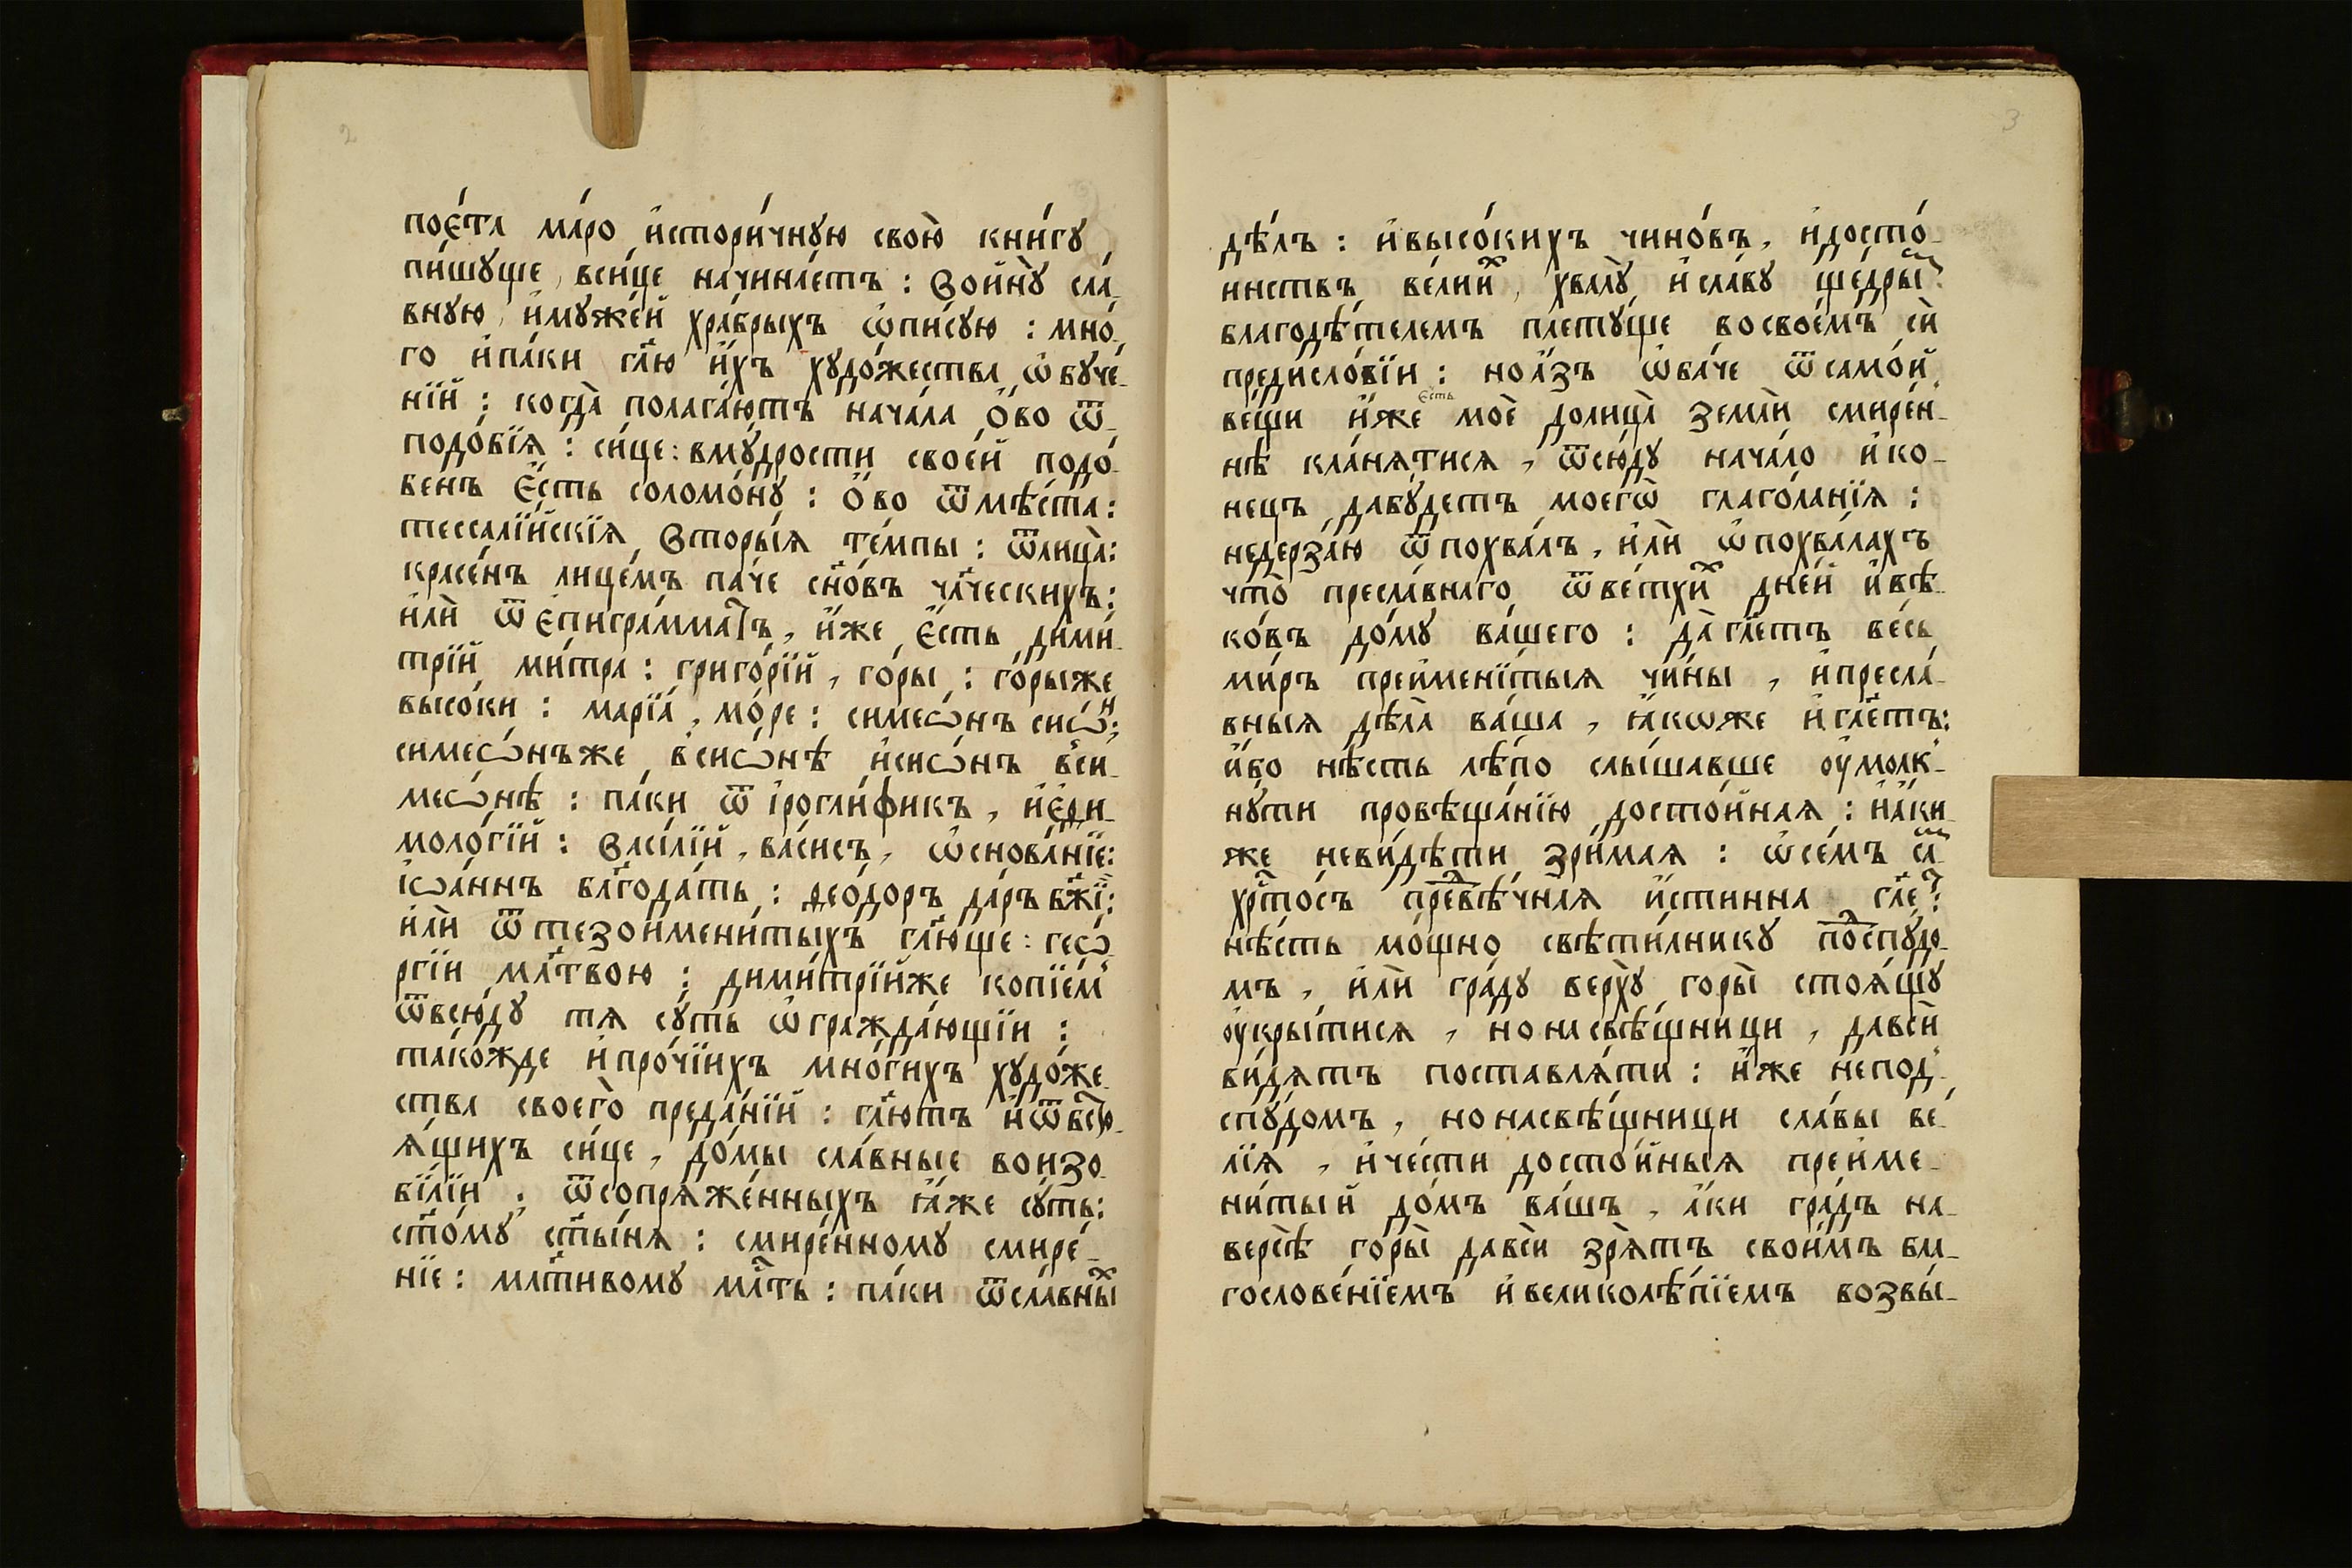 2
пое́та ма́ро и҆стори́чную свою̀ кни́гу
пи́шуще, вси́це начина́етъ : Войну̀ сла́
вную, и҆муже́й хра́брыхъ ѡ҆пи́сую : мно́
го и҆па́ки гл҃ю и҆́хъ худо́жества ѡ҆буче́
нїй : когда̀ полага́ютъ нача́ла ѻ҆́во ѿ
подо́бїя : си́це : вму́дрости свое́й подо́
бенъ є҆́сть соломо́ну : ѻ҆́во ѿмѣ́ста :
тессалі́йскїя Вторы́я те́мпы : ѿлица̀ :
красе́нъ лице́мъ па́че сн҃о́въ чл҃ческихъ :
и҆лѝ ѿ є҆пигра́мматъ, и҆́же є҆́сть дими́
трїй ми́тра : григо́рїй, го́ры : го́рыже
высо́ки : марі́а, мо́ре : симеѡ́нъ сиѡ́н :
симеѡ́нъже в̾сиѡ́нѣ и҆сиѡ́нъ в̾си
меѡ́нѣ : па́ки ѿ і҆рогли́фикъ, и҆є҆ди
моло́гїй : Васі́лїй, ва́сисъ, ѡ҆снова́нїе :
і҆ѡа́ннъ бл҃года́ть : ѳео́доръ да́ръ бж҃їй :
и҆лѝ ѿ тезоимени́тыхъ гл҃юще : геѡ́
ргїи мл҃твою : дими́трїйже копїе́м
ѿвсю́ду тя су́ть ѡ҆гражда́ющїи :
тако́жде и҆про́чїихъ мно́гихъ худо́же
ства своегѡ̀ преда́нїй : гл҃ютъ и҆ѿвсю
я́щихъ си́це, до́мы сла́вные воизо
би́лїи : ѿсопряже́нныхъ ꙗ҆́же су́ть :
ст҃о́му ст҃ы́ня : смире́нному смире́
нїе : мл҃тивому мл҃ть : па́ки ѿсла́вны́х
3
дѣ́лъ : и҆высо́кихъ чино́въ, и҆досто́
инствъ ве́лиих, хвалу̀ и҆сла́ву ще́дрым
благодѣ́телемъ плету́ще восвое́мъ сѝ
предисло́вїи : но а҆́зъ ѻ҆ба́че ѿ самой
ве́щи и҆́же є҆сть моѐ долица̀ землѝ смире́н
нѣ кла́нятися, ѿсю́ду нача́ло и҆ко
нецъ дабу́детъ моегѡ̀ глаго́ланїя :
недерза́ю ѿ похва́лъ, и҆лѝ ѡ҆ похва́лахъ
что̀ пресла́внаго ѿве́тхих дне́й и҆вѣ
ко́въ до́му ва́шего : да̀ гл҃етъ ве́сь
ми́ръ преиме́нїтыя чи́ны, и҆пресла́
вныя дѣла̀ ва́ша, ꙗ҆́коже и҆ гл҃етъ :
и҆́бо нѣ́сть лѣ́по слы́шавше ѹ҆молк
ну́ти провѣща́нїю досто́йная : и҆а҆́ки
же неви́дѣти зри́мая : ѡ҆се́мъ са́м
хр҃то́съ предвѣ́чная и҆́стинна гл҃ет :
нѣ́сть мо́щно свѣти́лнику подспудо
мъ, и҆лѝ гра́ду верху̀ горы̀ стоя́щу
ѹ҆кры́тися, но насвѣ́щници, давсѝ
ви́дятъ поставля́ти : и҆́же непод
спу́домъ, но насвѣ́щници сла́вы ве́
лїя, и҆че́сти досто́йныя преиме
ни́тый до́мъ ва́шъ, а҆́ки гра́дъ на
версѣ̀ горы̀ давсѝ зря́тъ свои́мъ бла
гослове́нїемъ и҆великолѣ́пїемъ возвы́